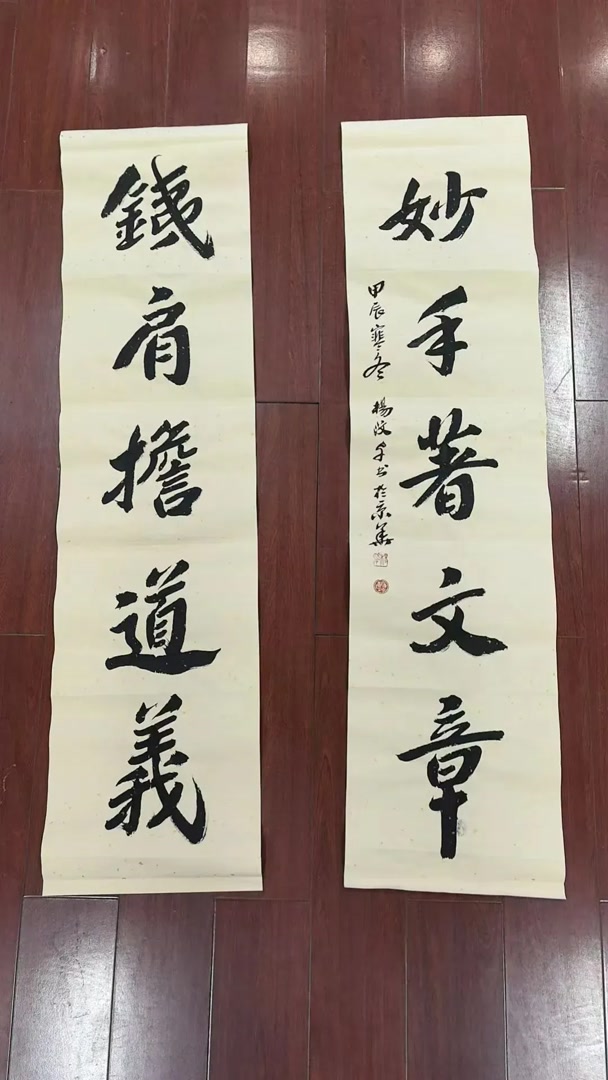 銕肩擔道義
妙手著文章
甲辰寒冬 楊汶书於京華